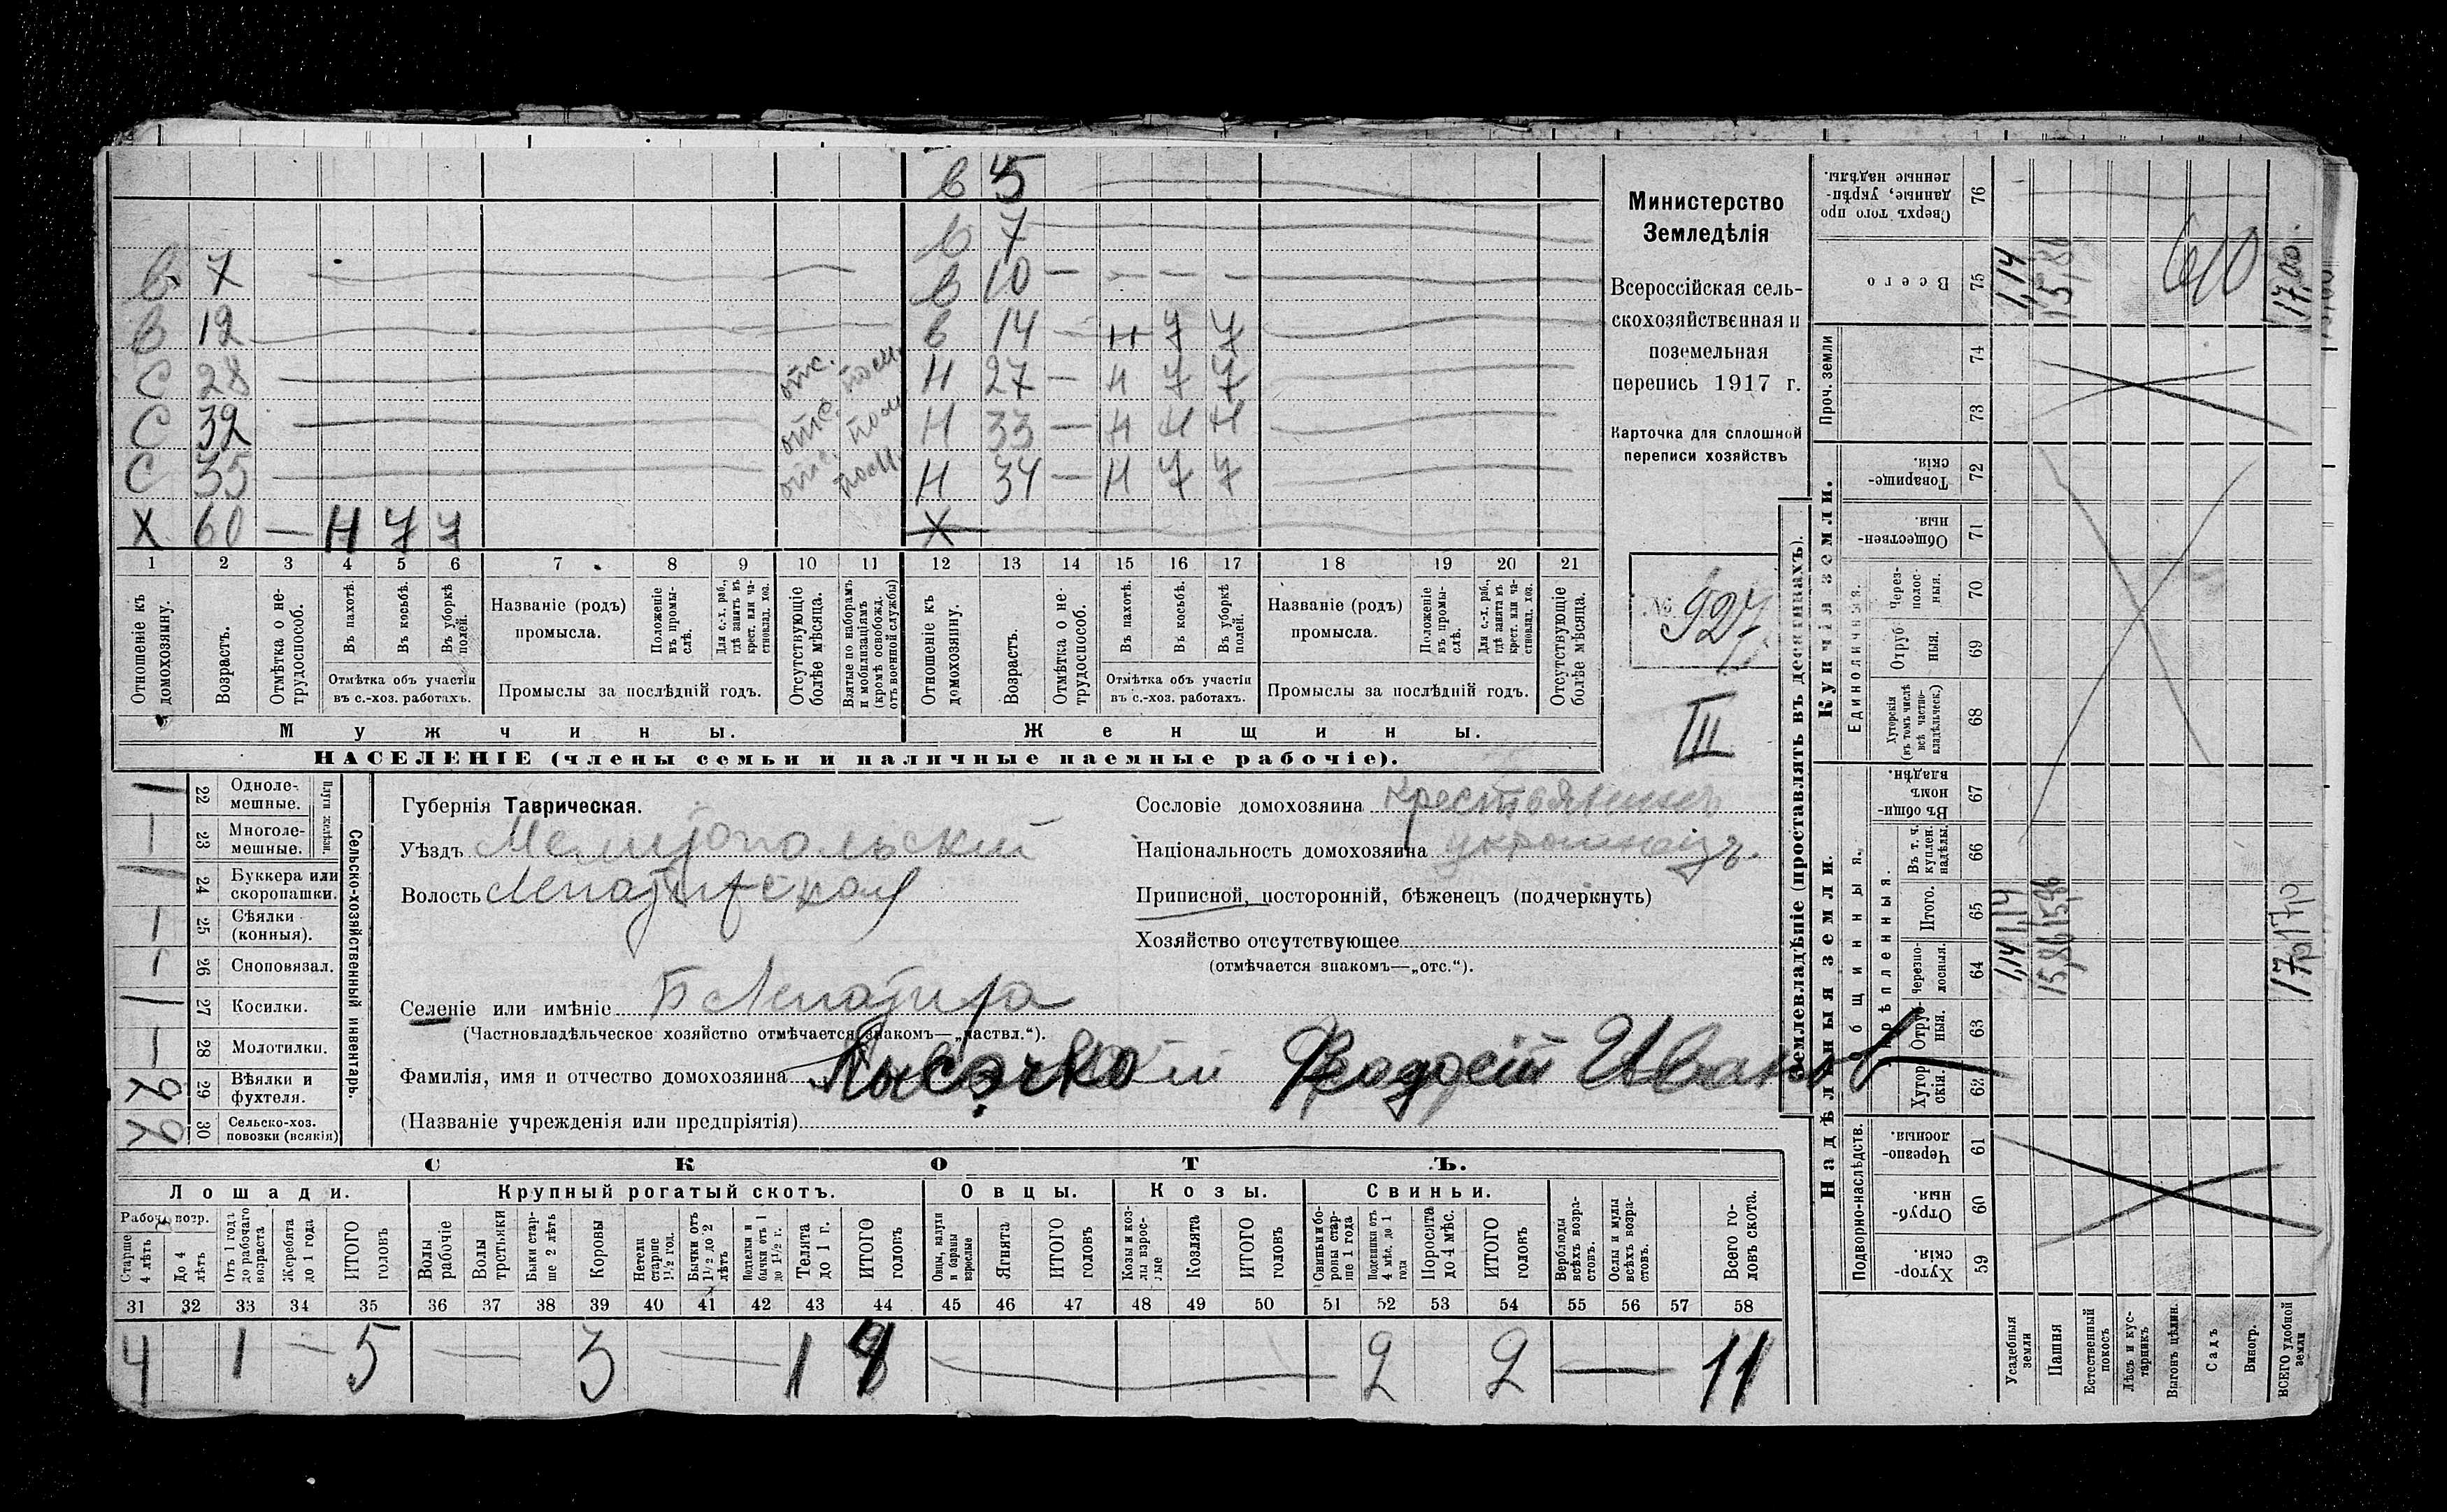 в 5
в 7
в 7 в 10 — — — —
в 12 в 14 — н 7 7
С 28 отс. посм. Н 27 — Н 7 7
С 32 отс. посм Н 33 — Н Н Н
С 35 отс. посм. Н 34 — Н 7 7
Х 60 — Н 7 7 Х
1 2 3 4 5 6 7 8 9 10 11 12 13 14 15 16 17 18 19 20 21
Отношеніе къ домохозяину.
Возрастъ.
Отмѣтка о нетрудоспособ.
Въ пахотѣ.
Въ косьбѣ.
Въ уборкѣ полей.
Отмѣтка объ участіи
въ с.-хоз. работахъ.
Названіе (родъ)
промысла.
Положеніе въ промыслѣ.
Для с.-х. раб., гдѣ занятъ въ крест. или частновлад. хоз.
Промыслы за послѣдній годъ.
Отсутствующіе болѣе мѣсяца.
Взятые по наборамъ и мобилизаціямъ (кромѣ освобожд. отъ военной службы)
Отношеніе къ домохозяину.
Возрастъ.
Отмѣтка о нетрудоспособ.
Въ пахотѣ.
Въ косьбѣ.
Въ уборкѣ полей.
Отмѣтка объ участіи
въ с.-хоз. работахъ.
Названіе (родъ)
промысла.
Положеніе въ промыслѣ.
Для с.-х. раб., гдѣ занята въ крест. или частновлад. хоз.
Промыслы за послѣдній годъ.
Отсутствующіе болѣе мѣсяца.
Мужчины. Женщины.
НАСЕЛЕНІЕ (члены семьи и наличные наемные рабочіе).
Министерство
Земледѣлія
Всероссійская сель-
скохозяйственная и
поземельная
перепись 1917 г.
Карточка для сплошной
переписи хозяйствъ
№ 927
III
Сельско-хозяйственный инвентарь.
Плуги желѣзн.
1 22 Однолемешные.
1 23 Многолемешные.
24 Буккера или скоропашки.
1 25 Сѣялки (конныя).
1 26 Сноповязал.
27 Косилки.
1 28 Молотилки.
29 Вѣялки и фухтеля.
30 Сельско-хоз. повозки (всякія)
Губернія Таврическая.
Уѣздъ Мелитопольскій
Волость Лепатихская
Селеніе или имѣніе Б Лепатиха
(Частновладѣльческое хозяйство отмѣчается знакомъ—„частвл.“).
Фамилія, имя и отчество домохозяина Лысочко Феодосій Иванов
(Названіе учрежденія или предпріятія)
Сословіе домохозяина крестьянинъ
Національность домохозяина украинецъ.
Приписной, посторонній, бѣженецъ (подчеркнуть)
Хозяйство отсутствующее
(отмѣчается знакомъ—„отс.“).
СКОТЪ.
Лошади. Крупный рогатый скотъ. Овцы. Козы. Свиньи.
Рабоч. возр.
Старше 4 лѣтъ
До 4 лѣтъ
Отъ 1 года до рабочаго возраста
Жеребята до 1 года
ИТОГО головъ
Волы рабочіе
Волы третьяки
Быки старше 2 лѣтъ
Коровы
Нетели старше 1½ год.
Бычки отъ 1½ до 2 лѣтъ
Подтелки и бычки отъ 1 до 1½ г.
Телята до 1 г.
ИТОГО головъ
Овцы, валухи и бараны взрослые
Ягнята
ИТОГО головъ
Козы и козлы взрослые
Козлята
ИТОГО головъ
Свиньи и боровы старше 1 года
Подсвинки отъ 4 мѣс. до 1 года
Поросята до 4 мѣс.
ИТОГО головъ
Верблюды всѣхъ возрастовъ.
Ослы и мулы всѣхъ возрастовъ.
Всего головъ скота.
31 32 33 34 35 36 37 38 39 40 41 42 43 44 45 46 47 48 49 50 51 52 53 54 55 56 57 58
4 1 — 5 — 3 — 1 4 — 2 2 — 11
Землевладѣніе (проставлять въ десятинахъ).
Надѣльныя земли. Купчія земли. Проч. земли
Подворно-наслѣдств.
Общинныя.
Укрѣпленныя.
Единоличныя.
Сверхъ того проданные, укрѣпленные надѣлы. 76
Всего 75 1,14 15,86 17,00.
74
73
Товарищескія. 72
Общественныя. 71
Черезполосныя. 70
Отрубныя. 69
Хуторскія (въ томъ числѣ всѣ частновладѣльческ.) 68
Въ общинномъ владѣн. 67
Въ т. ч. куплен. надѣлы. 66
Итого. 65 1,14 15,86 17,0
Черезполосныя. 64 1,14 15,86 17,0
Отрубныя. 63
Хуторскія. 62
Черезполосныя. 61
Отрубныя. 60
Хуторскія. 59
Усадебныя земли
Пашня
Естественный покосъ
Лѣсъ и кустарникъ
Выгонъ цѣлин.
Садъ
Виногр.
ВСЕГО удобной земли